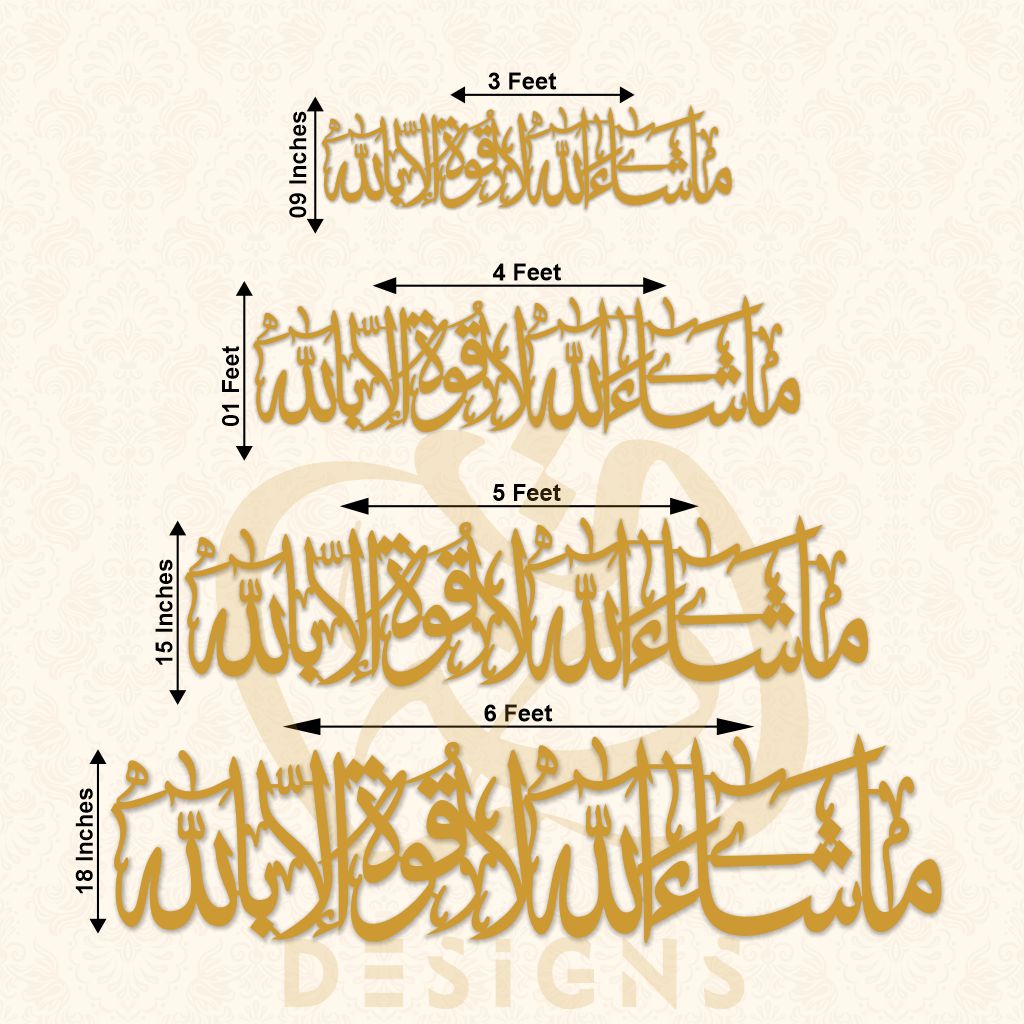 3 Feet
09 Inches
ما شاء الله لا قوة إلا بالله
4 Feet
01 Feet
ما شاء الله لا قوة إلا بالله
5 Feet
15 Inches
ما شاء الله لا قوة إلا بالله
6 Feet
18 Inches
ما شاء الله لا قوة إلا بالله
DESiGNS